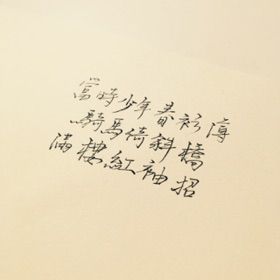 當時少年春衫薄
騎馬倚斜橋
滿樓紅袖招